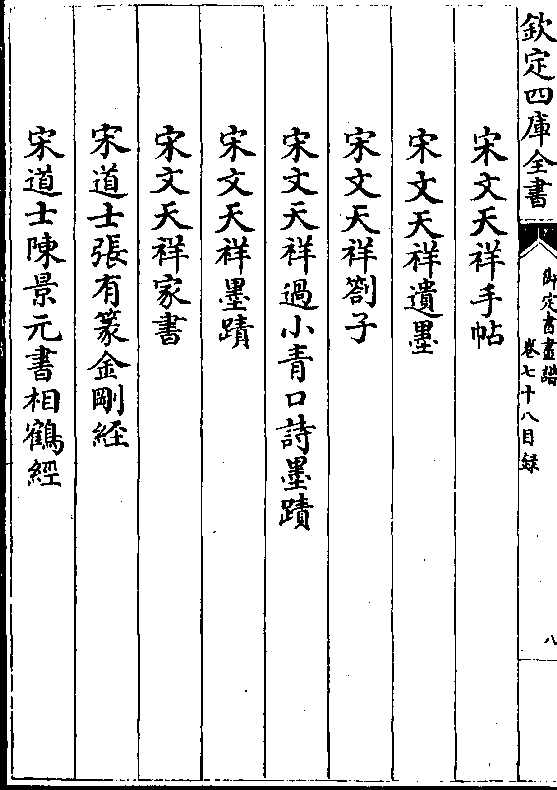 欽定四庫全書
御定書畫譜
卷七十八目録
八
宋文天祥手帖
宋文天祥遺墨
宋文天祥劄子
宋文天祥過小青口詩墨蹟
宋文天祥墨蹟
宋文天祥家書
宋道士張有篆金剛經
宋道士陳景元書相鶴經